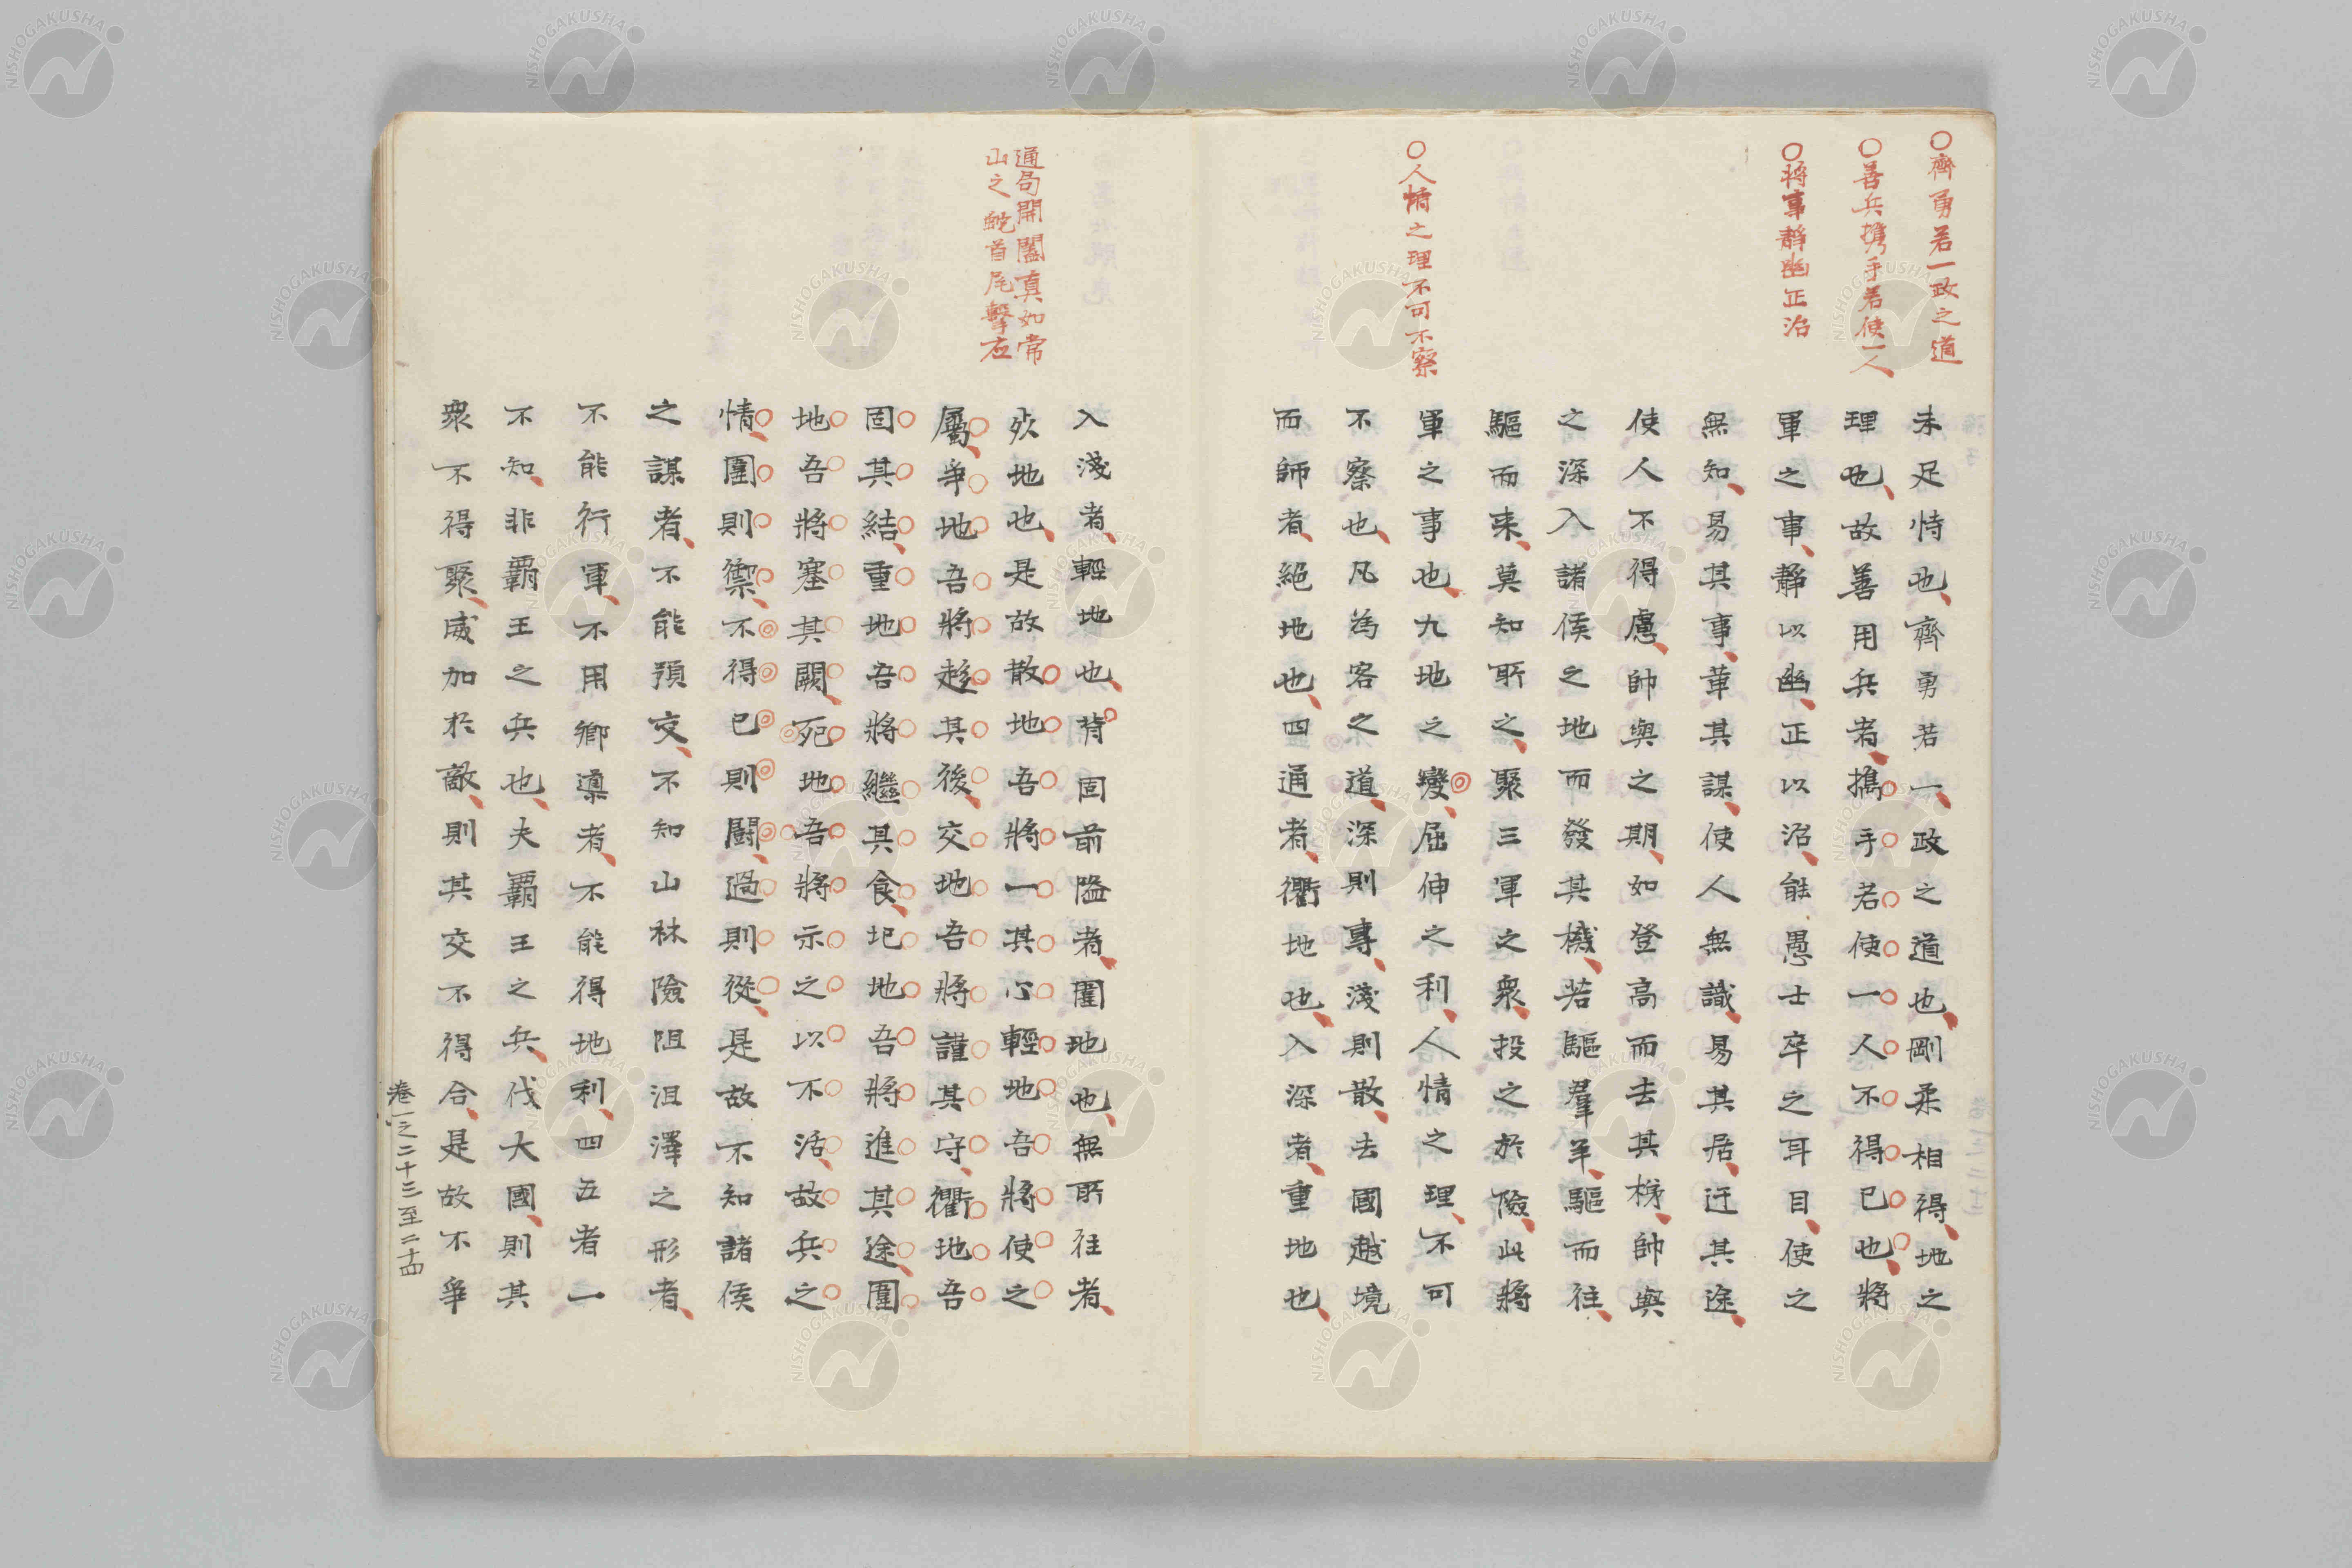 ○齊勇若一政之道
○善兵攜手若使一人
○將事靜幽正治
○人情之理不可不察
未足恃也齊勇若一政之道也剛柔相得地之
理也故善用兵者攜手若使一人不得已也將
軍之事靜以幽正以治能愚士卒之耳目使之
無知易其事革其謀使人無識易其居迂其途
使人不得慮帥與之期如登高而去其梯帥與
之深入諸侯之地而發其機若驅羣羊驅而往
驅而来莫知所之聚三軍之衆投之於險此將
軍之事也九地之變屈伸之利人情之理不可
不察也凡為客之道深則專淺則散去國越境
而師者絕地也四通者衢地也入深者重地也
通局開闔真如常
山之蛇首尾擊应
入淺者輕地也背固前隘者圍地也無所往者
死地也是故散地吾將一其心輕地吾將使之
屬爭地吾將趍其後交地吾將謹其守衢地吾
固其結重地吾將繼其食圮地吾將進其途圍
地吾將塞其闕死地吾將示之以不活故兵之
情圍則禦不得已則鬪過則從是故不知諸侯
之謀者不能預交不知山林險阻沮澤之形者
不能行軍不用鄉導者不能得地利四五者一
不知非霸王之兵也夫霸王之兵伐大國則其
衆不得聚威加於敵則其交不得合是故不爭
卷一之二十三至二十四
NISHOGAKUSHA